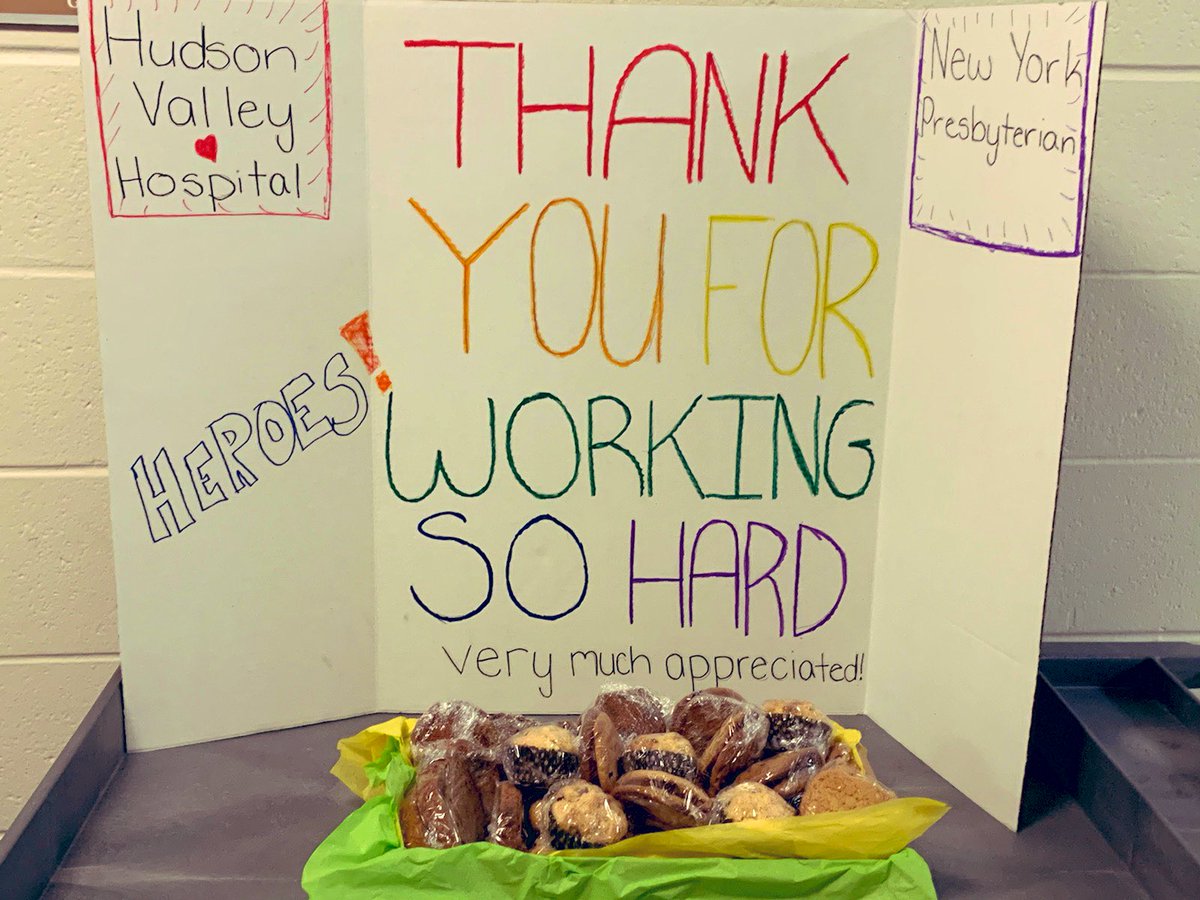 Hudson
Valley
Hospital
HEROES!
THANK
YOU FOR
WORKING
SO HARD
very much appreciated!
New York
Presbyterian